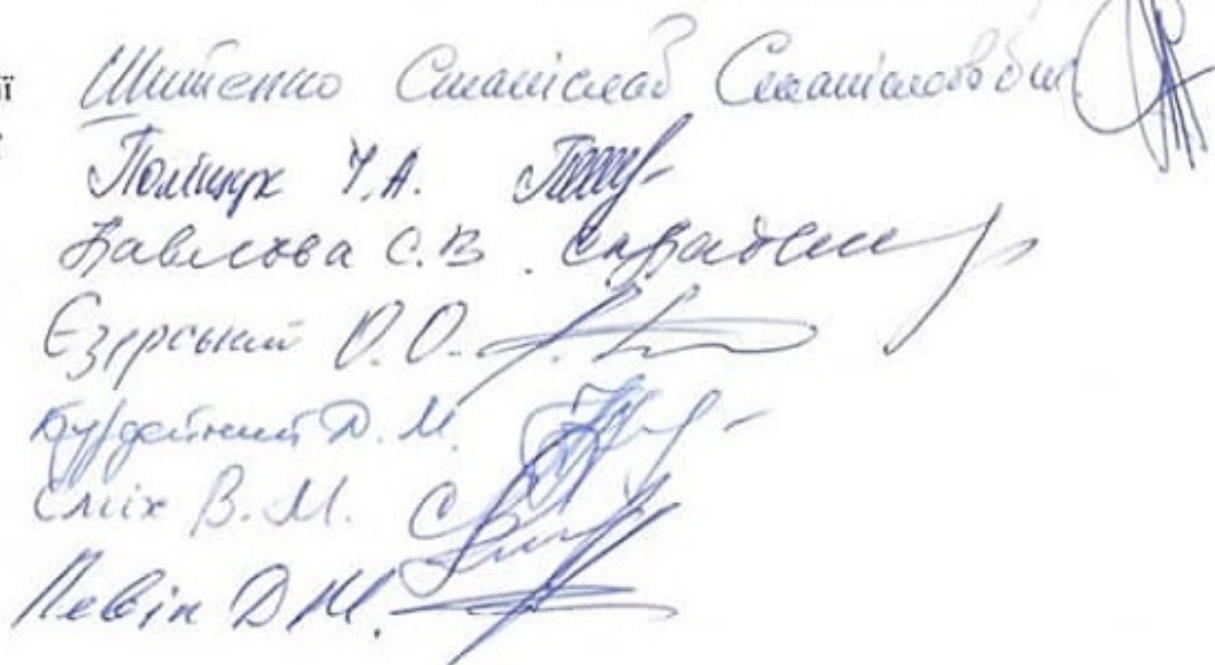 ї Шитенко Станіслав Станіславович
ї Поліщук У.А.
Павлова С.В.
Єзерський О.О.
Бурдейний Д.М.
Сміх В.М.
Левін Д.М.